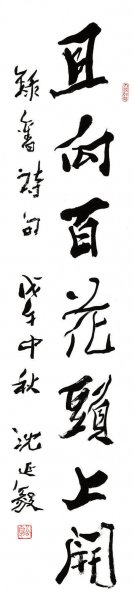 且向百花頭上開
錄舊詩句 戊午中秋 沈延毅